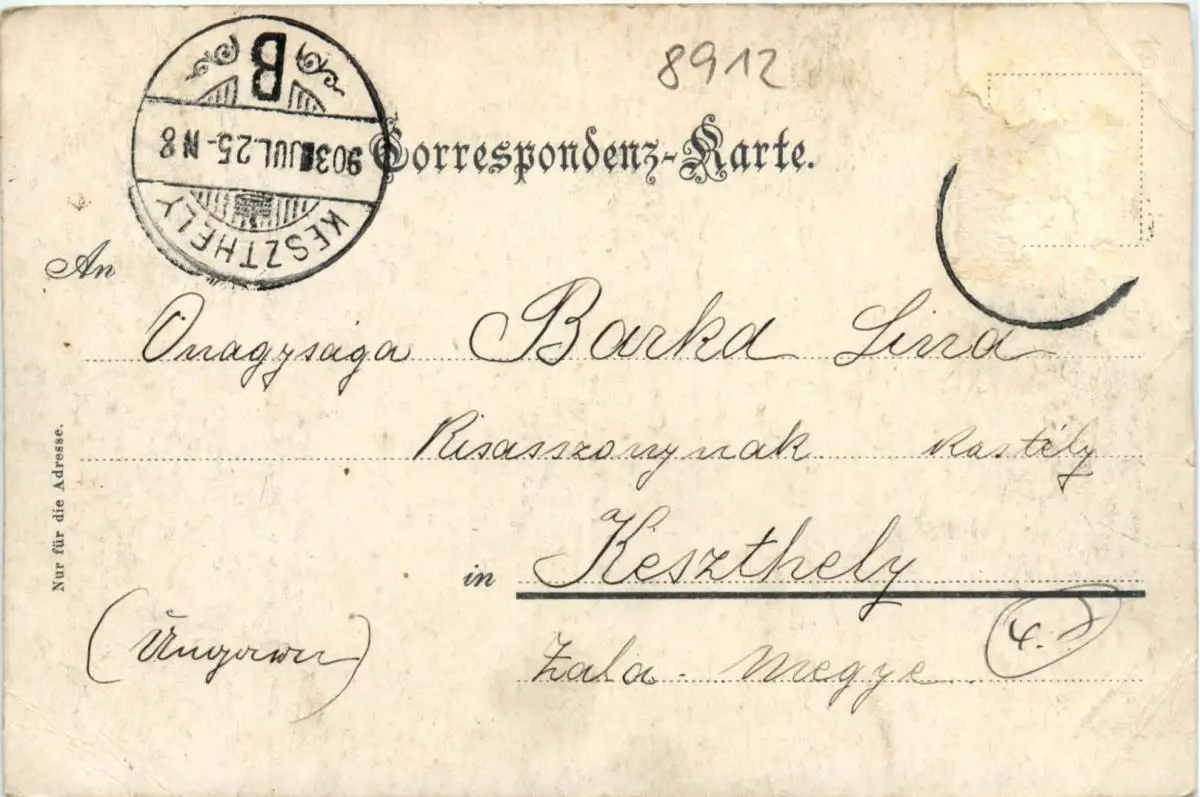 8912
B
903 JUL.25.-N8
KESZTHELY
Correspondenz-Karte.
An
Önagysága Barka Lina
Kisasszonynak Kastély
in Keszthely
(Ungarn)
Zala-Megye
Nur für die Adresse.